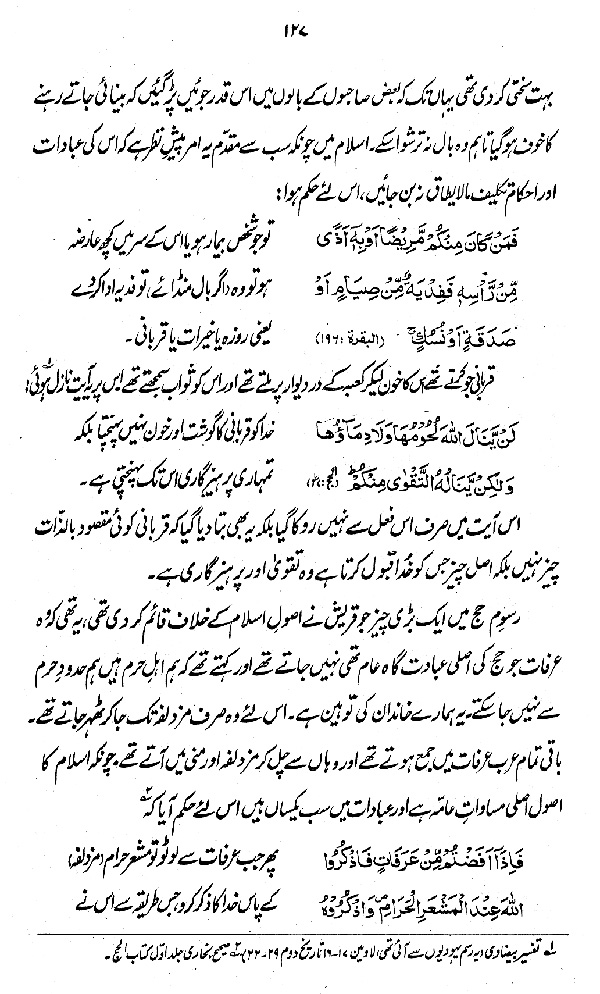 ۱۲۷
بہت سختی کر دی تھی یہاں تک کہ بعض صاحبوں کے بالوں میں اس قدر جوئیں پڑ گئیں کہ بینائی جاتے رہنے
کا خوف ہو گیا تاہم وہ بال نہ ترشوا سکے۔ اسلام میں چونکہ سب سے مقدم یہ امر پیش نظر ہے کہ اس کی عبادات
اور احکام تکلیف مالا یطاق نہ بن جائیں، اس لئے حکم ہوا:
فَمَنْ كَانَ مِنْكُمْ مَّرِيْضًا اَوْ بِهٖٓ اَذًى تو جو شخص بیمار ہو یا اس کے سر میں کچھ عارضہ
مِّنْ رَّاْسِهٖ فَفِدْيَةٌ مِّنْ صِيَامٍ اَوْ ہو تو وہ (اگر بال منڈائے) تو فدیہ ادا کر دے
صَدَقَةٍ اَوْ نُسُكٍ (البقرة: ۱۹۶) یعنی روزہ یا خیرات یا قربانی۔
قربانی جو کرتے تھے اس کا خون لیکر کعبہ کے در دیوار پر ملتے تھے اور اس کو ثواب سمجھتے تھے اس پر یہ آیت نازل ہوئی:
لَنْ يَّنَالَ اللّٰهَ لُحُوْمُهَا وَلَا دِمَآؤُهَا خدا کو قربانی کا گوشت اور خون نہیں پہنچتا بلکہ
وَلٰكِنْ يَّنَالُهُ التَّقْوٰى مِنْكُمْ (الحج: ۳۷) تمہاری پرہیزگاری اس تک پہنچتی ہے۔
اس آیت میں صرف اس فعل سے نہیں روکا گیا بلکہ یہ بھی بتا دیا گیا کہ قربانی کوئی مقصود بالذات
چیز نہیں بلکہ اصل چیز جس کو خدا قبول کرتا ہے وہ تقویٰ اور پرہیزگاری ہے۔
رسوم حج میں ایک بڑی چیز جو قریش نے اصول اسلام کے خلاف قائم کر دی تھی، یہ تھی کہ وہ
عرفات جو حج کی اصلی عبادت گاہ عام تھی نہیں جاتے تھے اور کہتے تھے کہ ہم اہل حرم ہیں ہم حدود حرم
سے نہیں جا سکتے۔ یہ ہمارے خاندان کی توہین ہے۔ اس لئے وہ صرف مزدلفہ تک جا کر ٹھہر جاتے تھے۔
باقی تمام عرب عرفات میں جمع ہوتے تھے اور وہاں سے چل کر مزدلفہ اور منیٰ میں آتے تھے۔ چونکہ اسلام کا
اصول اصلی مساوات عامہ ہے اور عبادات میں سب یکساں ہیں اس لئے حکم آیا کہ ۲
فَاِذَآ اَفَضْتُمْ مِّنْ عَرَفَاتٍ فَاذْكُرُوا پھر جب عرفات سے لوٹو تو مشعر حرام (مزدلفہ)
اللّٰهَ عِنْدَ الْمَشْعَرِ الْحَرَامِ وَاذْكُرُوْهُ کے پاس خدا کا ذکر کرو، جس طریقہ سے اس نے
۱ تفسیر بیضاوی (یہ رسم یہودیوں سے آئی تھی) لاوین ۱۷-۶ تاریخ دوم ۲۹-۲۲) ۲ صحیح بخاری جلد اول کتاب الحج۔